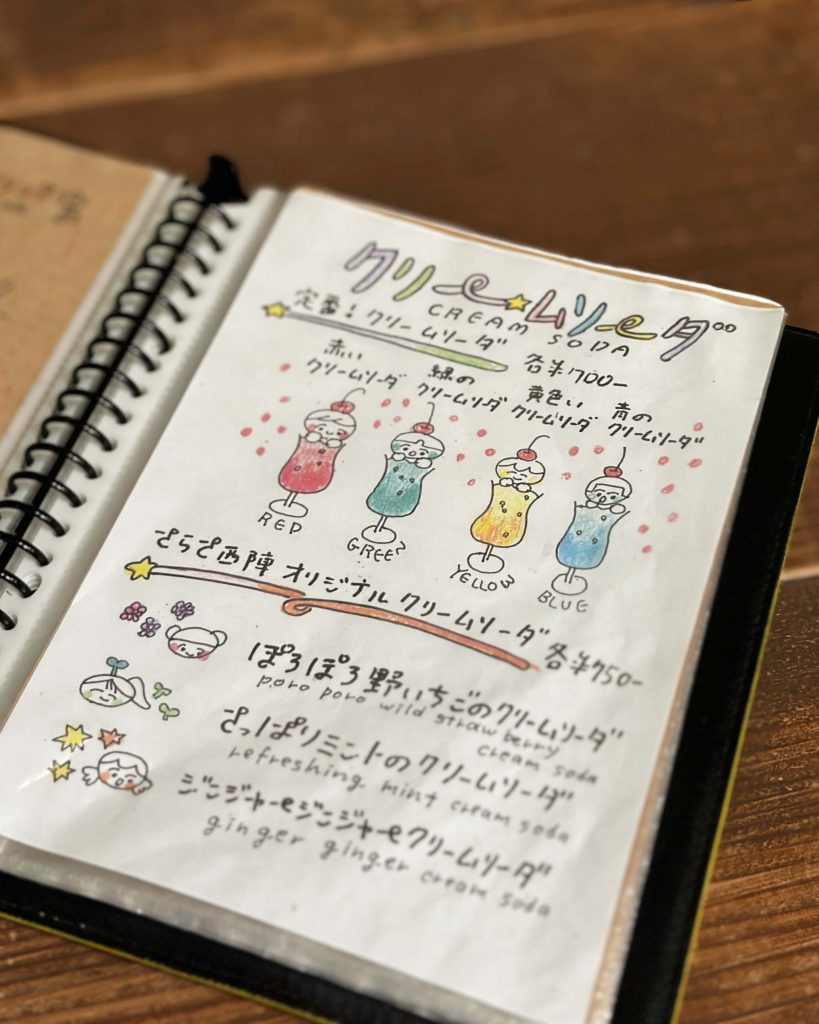 クリームソーダ
CREAM SODA
定番！クリームソーダ 各¥700-
赤い クリームソーダ
緑の クリームソーダ
黄色い クリームソーダ
青の クリームソーダ
RED
GREEN
YELLOW
BLUE
さらさ西陣 オリジナル クリームソーダ 各¥750-
ぽろぽろ野いちごのクリームソーダ
poro poro wild strawberry cream soda
さっぱりミントのクリームソーダ
refreshing mint cream soda
ジンジャーeジンジャーeクリームソーダ
ginger ginger cream soda